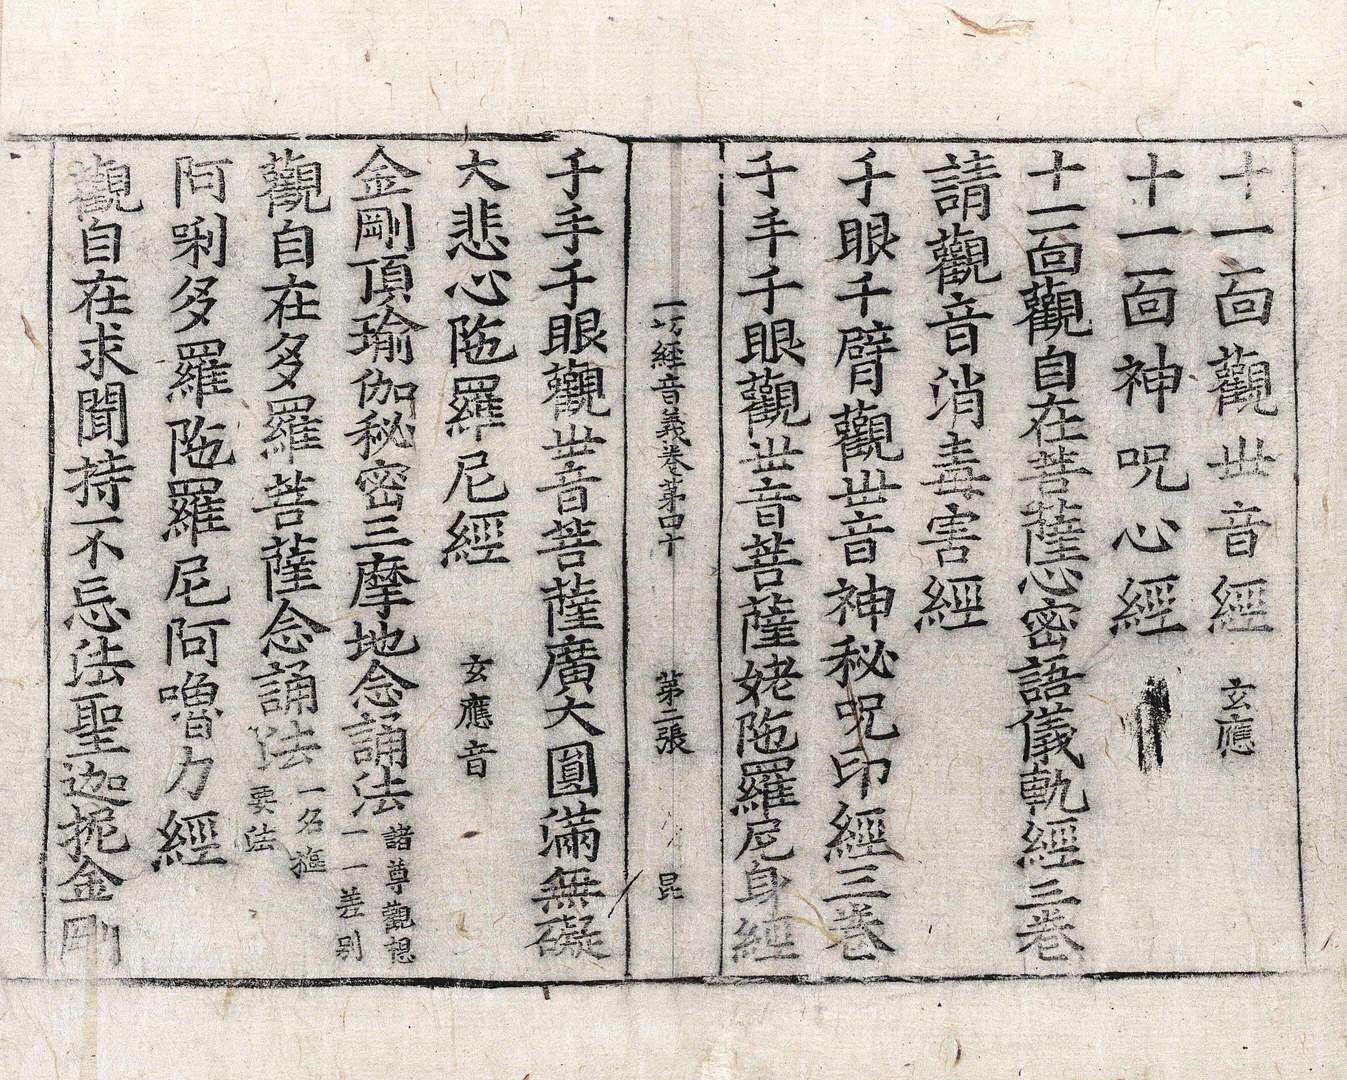 十一面觀世音經 玄應
十一面神呪心經
十一面觀自在菩薩心密語儀軌經三卷
請觀音消毒害經
千眼千臂觀世音神秘呪印經三卷
千手千眼觀世音菩薩姥陁羅尼身經
一切經音義卷第四十 第二張 昆
千手千眼觀世音菩薩廣大圓滿無礙
大悲心陁羅尼經 玄應音
金剛頂瑜伽秘密三摩地念誦法 諸尊觀想一一差别
觀自在多羅菩薩念誦法 一名摳要法
阿唎多羅陁羅尼阿嚕力經
觀自在求聞持不忘法聖迦抳金剛